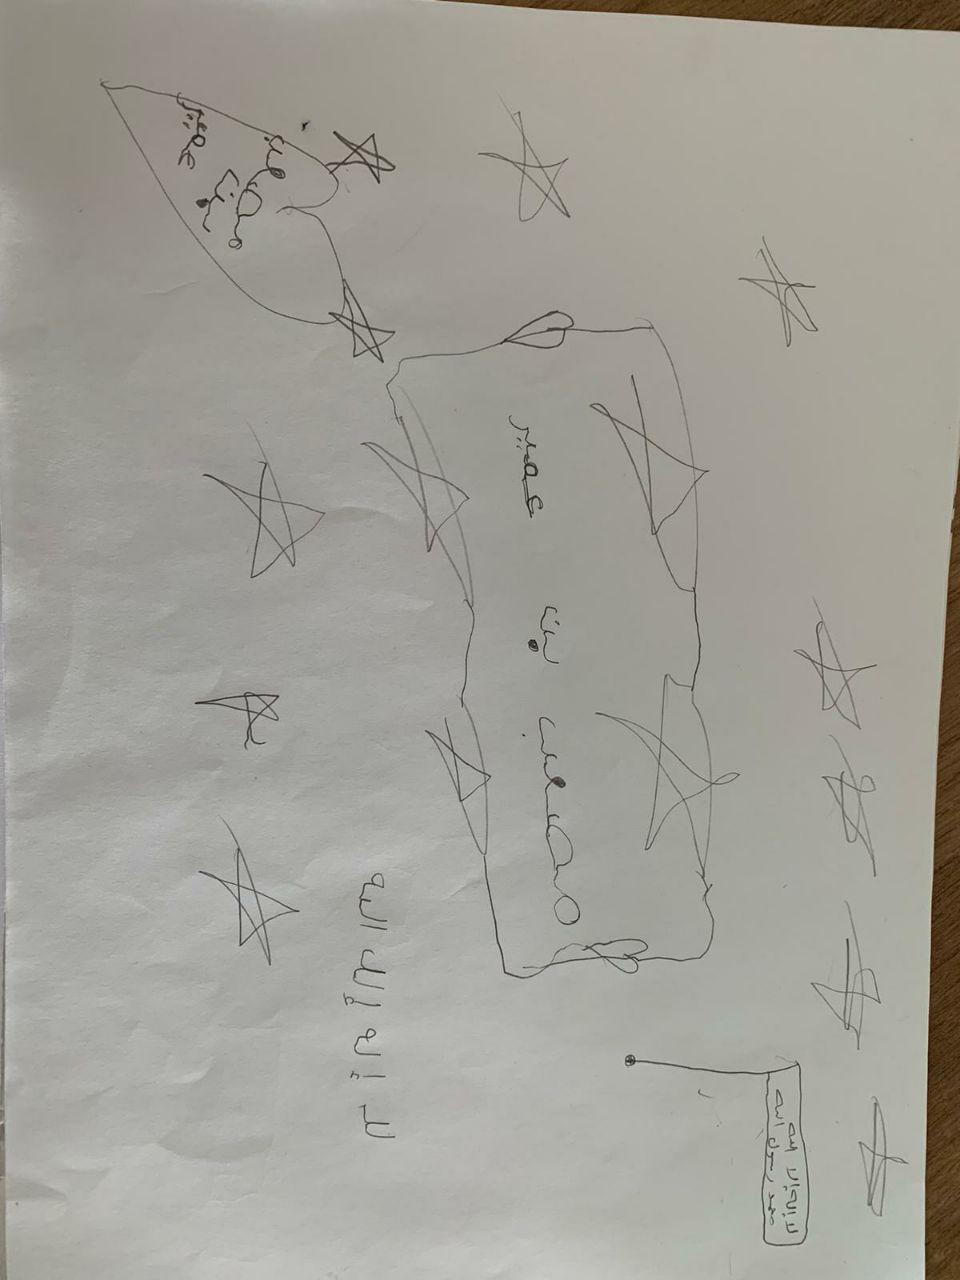 لا إله إلا الله
محمد رسول الله
مصعب بن عمير
لا إله إلا الله
مصعب
بن
عمير